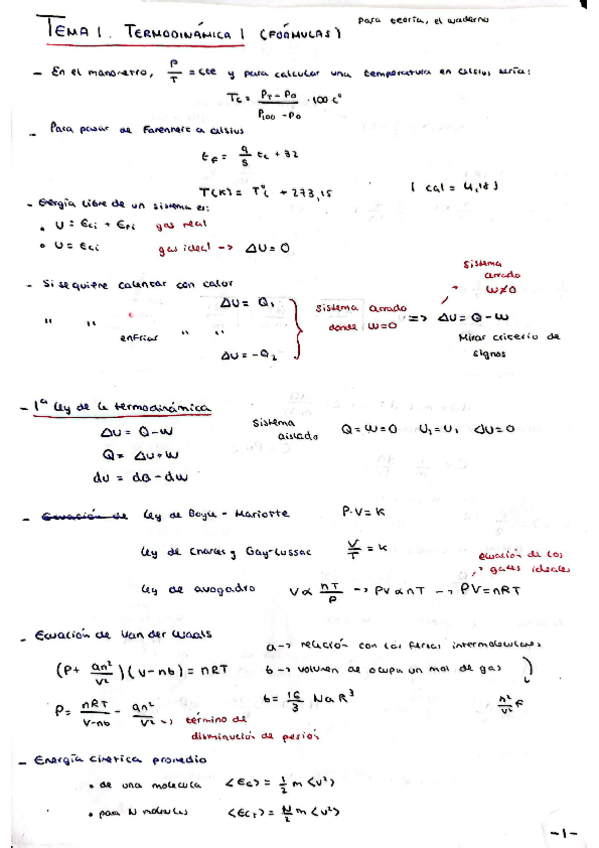 para teoría, el cuaderno
TEMA 1. TERMODINÁMICA 1 (FÓRMULAS)
- En el manometro, P/T = cte y para calcular una temperatura en celsius sería:
Tc = (PT - P0)/(P100 - P0) · 100 Cº
- Para pasar de Farenheit a celsius
tF = 9/5 tc + 32
T(K) = Tºc + 273,15 1 cal = 4,18 J
- Energía libre de un sistema es:
• U = Eci + Epi gas real
• U = Eci gas ideal -> ΔU = 0
- Si se quiere calentar con calor
ΔU = Q1
" " enfriar " "
ΔU = -Q2
sistema cerrado donde W=0 => ΔU = Q - W
sistema cerrado W≠0
Mirar criterio de signos
- 1ª ley de la termodinámica
ΔU = Q - W
Q = ΔU + W
dU = dQ - dW
Sistema aislado Q = W = 0 U1 = U1 dU = 0
- Ecuación de Ley de Boyle - Mariotte P·V = K
Ley de Charles y Gay-Lussac V/T = K
Ley de avogadro V ∝ nT/P -> PV ∝ nT -> PV = nRT
ecuación de los gases ideales
- Ecuación de Van der Waals
(P + an²/V²)(V - nb) = nRT
P = nRT/(V-nb) - an²/V² -> término de disminución de presión
a -> relación con las fuerzas intermoleculares
b -> volumen que ocupa un mol de gas
b = 16/3 Na R³
n²/V²
- Energía cinética promedio
• de una molecula <Ec> = 1/2 m <v²>
• para N moleculas <Ec> = N/2 m <v²>
-1-